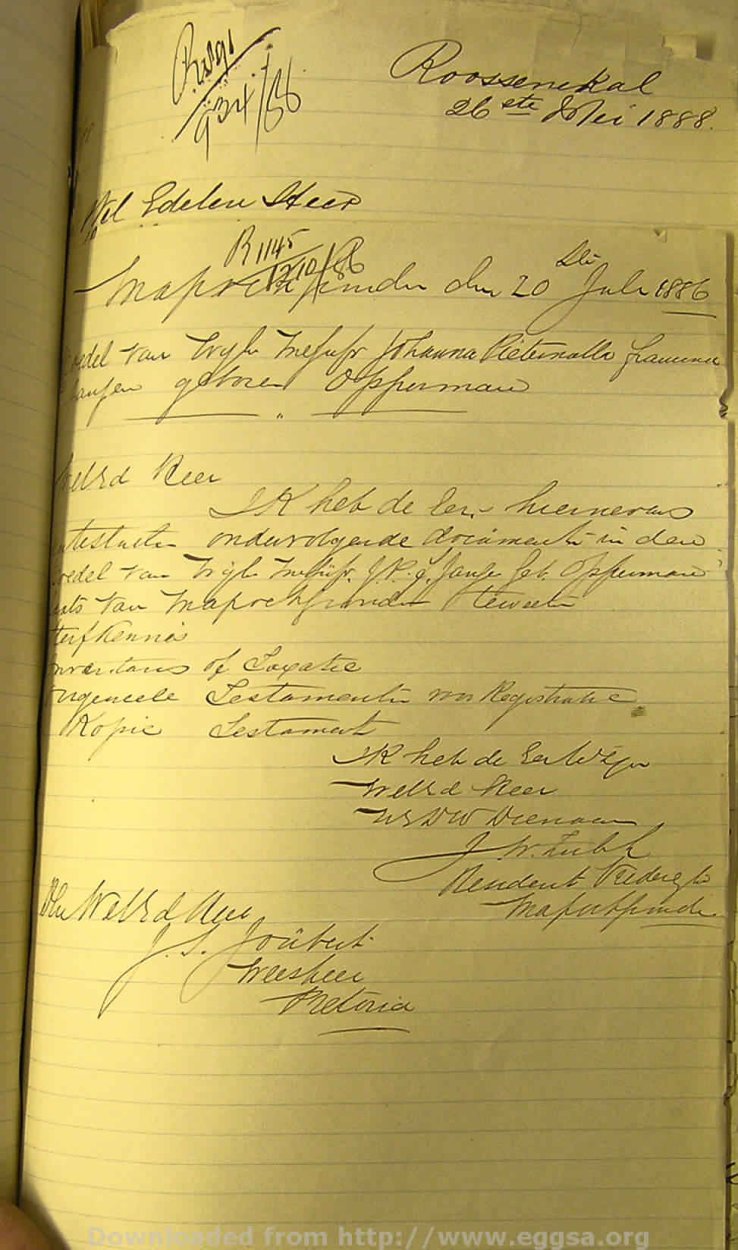 R 934/86
Roossenekal
26 ste Mei 1888.
Wel Edelen Heer
R 1145
1210/86
Mapochsgronden den 20 Ste Juli 1886
oedel van wyle Mejufr Johanna Pieternella
geboren Opperman
WelEd Heer
Ik heb de Eer hiernevens
ondervolgende documenten in den
oedel van wyle Mejufr. J.P.F. geb. Opperman
van Mapochsgronden teweten
terfkennis
nventaris of Taxatie
Testamenten voor Registratie
Kopie Testament
Ik heb de Eer te zyn
WelEd Heer
UEDW Dienaar
Resident Vrederegter
Mapochsgronden
Den WelEd Heer
J. S. Joubert
Weesheer
Pretoria
Downloaded from http://www.eggsa.org